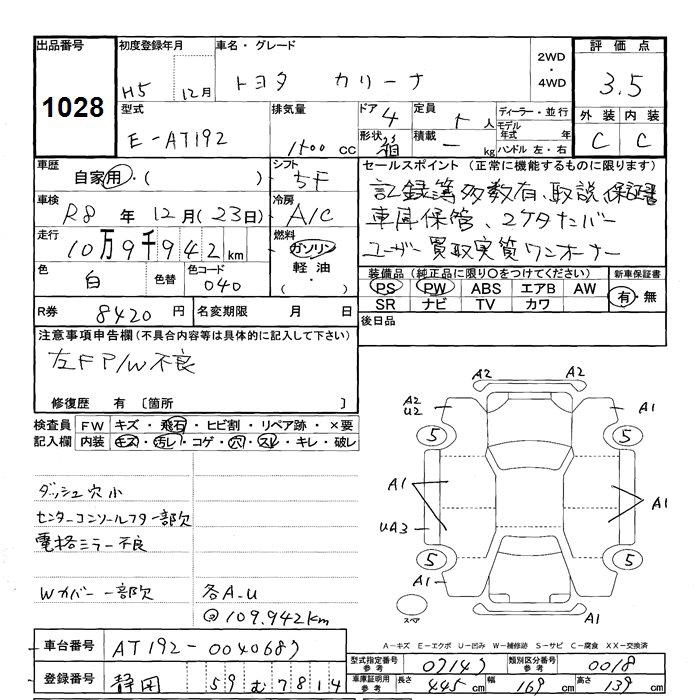 出品番号 初度登録年月 車名・グレード 2WD・4WD 評価点
1028 H5 12月 トヨタ カリーナ 3.5
型式 排気量 ドア 4 定員 5人 ディーラー・並行 外装 内装
E-AT192 1500 cc 形状 箱 積載 ー kg モデル年式 年 ハンドル 左・右 C C
車歴 シフト セールスポイント (正常に機能するものに限ります)
自家用・( ) 5F 記録簿多数有、取説、保証書
車検 冷房 車庫保管、2ケタナンバー
R8 年 12月(23日) A/C ユーザー買取実質ワンオーナー
走行 10万9千942km 燃料 ガソリン 軽油・( )
色 白 色替 色コード 040
装備品 (純正品に限り○をつけてください) 新車保証書
PS PW ABS エアB AW 有・無
SR ナビ TV カワ
R券 8420 円 名変期限 月 日 後日品
注意事項申告欄 (不具合内容等は具体的に記入して下さい)
左F P/W 不良
修復歴 有 〔箇所 〕
検査員 FW キズ・飛石・ヒビ割・リペア跡・×要
記入欄 内装 キズ・汚レ・コゲ・穴・スレ・キレ・破レ
A2 A2
A2 U2 A1
5 5
A1 A1
UA3
5 5
A1 A1
スペア
A2
ダッシュ穴小
センターコンソールフタ一部欠
電格ミラー不良
Wカバー一部欠 各A.U
@109.942km
A-キズ E-エクボ U-凹み W-補修跡 S-サビ C-腐食 XX-交換済
車台番号 AT192-0040687
型式指定番号 参考 07147 類別区分番号 参考 0018
登録番号 静岡 59 む 7814
車庫証明用 参考 長さ 445cm 幅 169cm 高さ 139cm